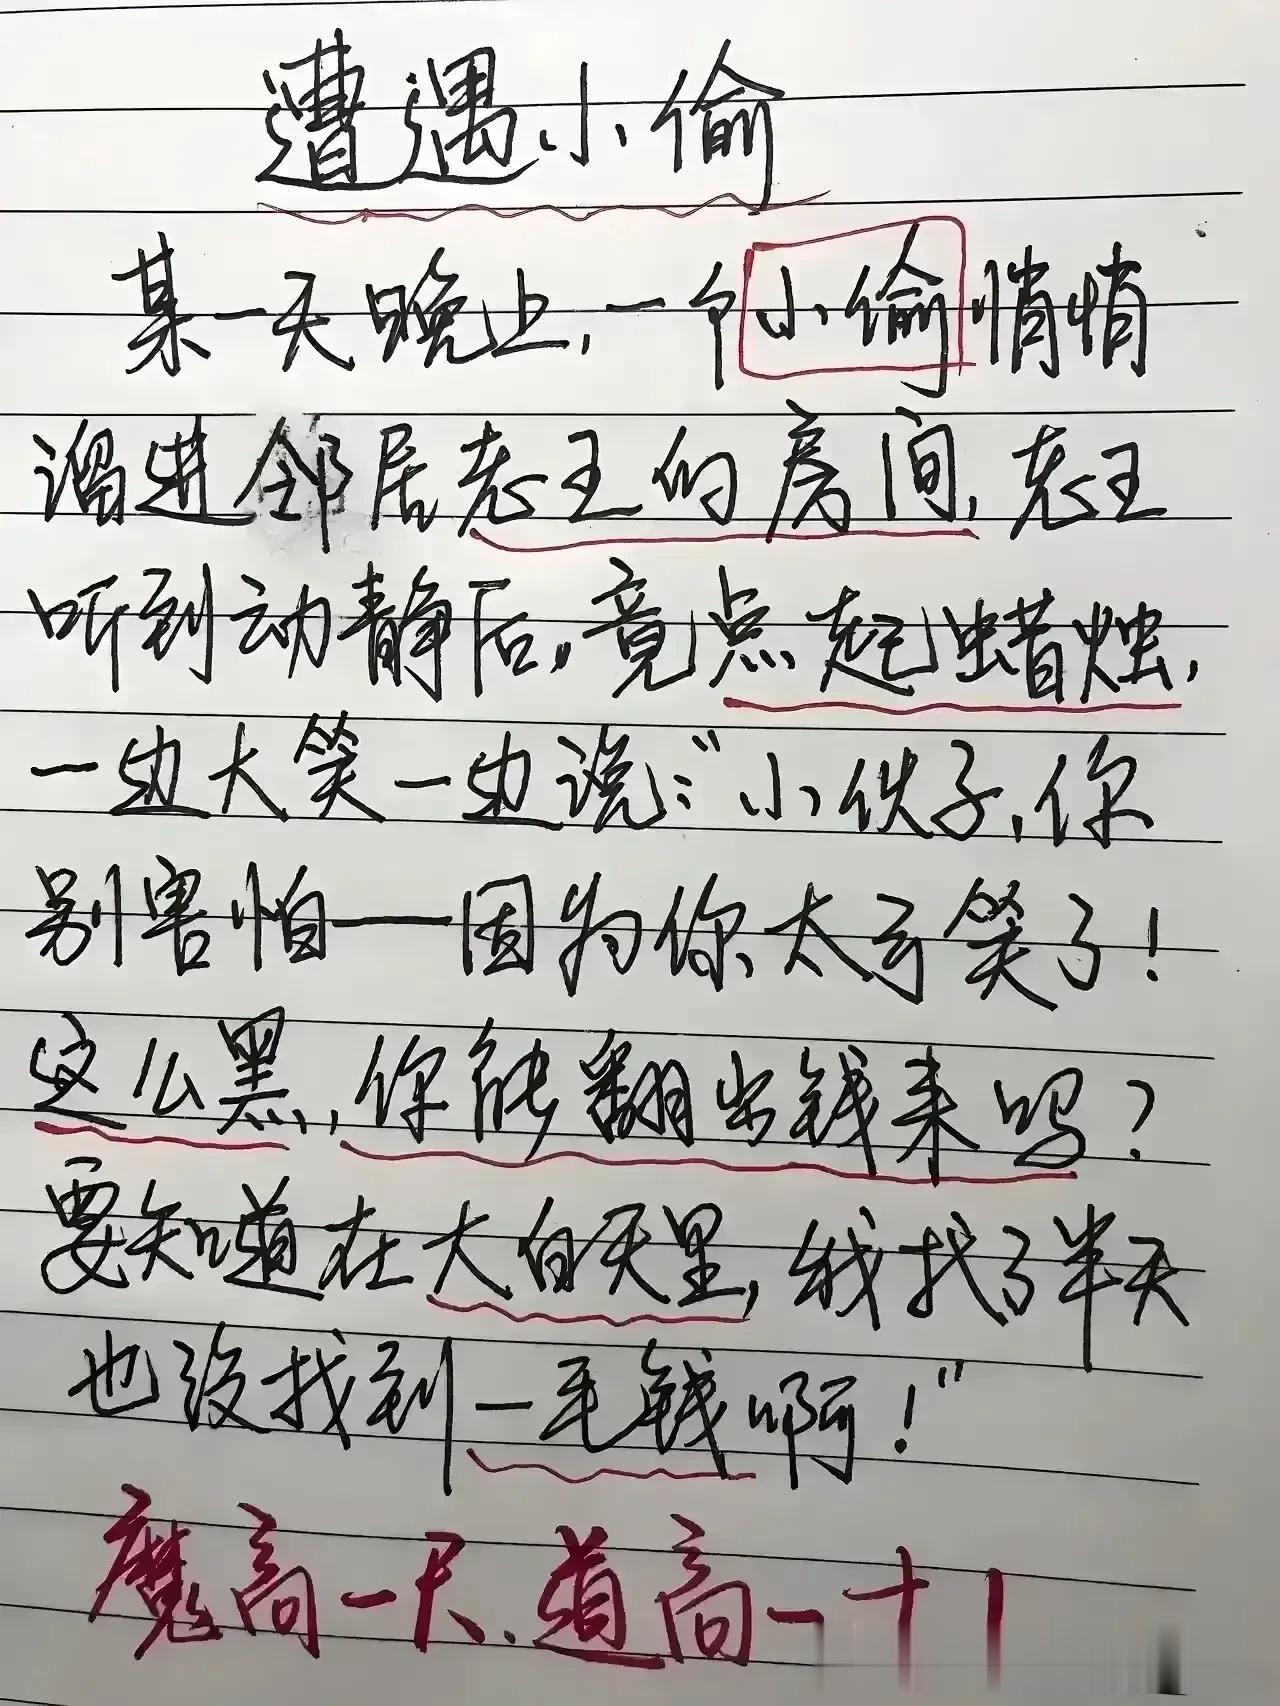 遭遇小偷
某一天晚上,一个小偷悄悄
溜进邻居老王的房间,老王
听到动静后,竟点起蜡烛,
一边大笑一边说:“小伙子,你
别害怕——因为你太可笑了!
这么黑,你能翻出钱来吗?
要知道在大白天里,我找了半天
也没找到一毛钱啊!”
魔高一尺、道高一十